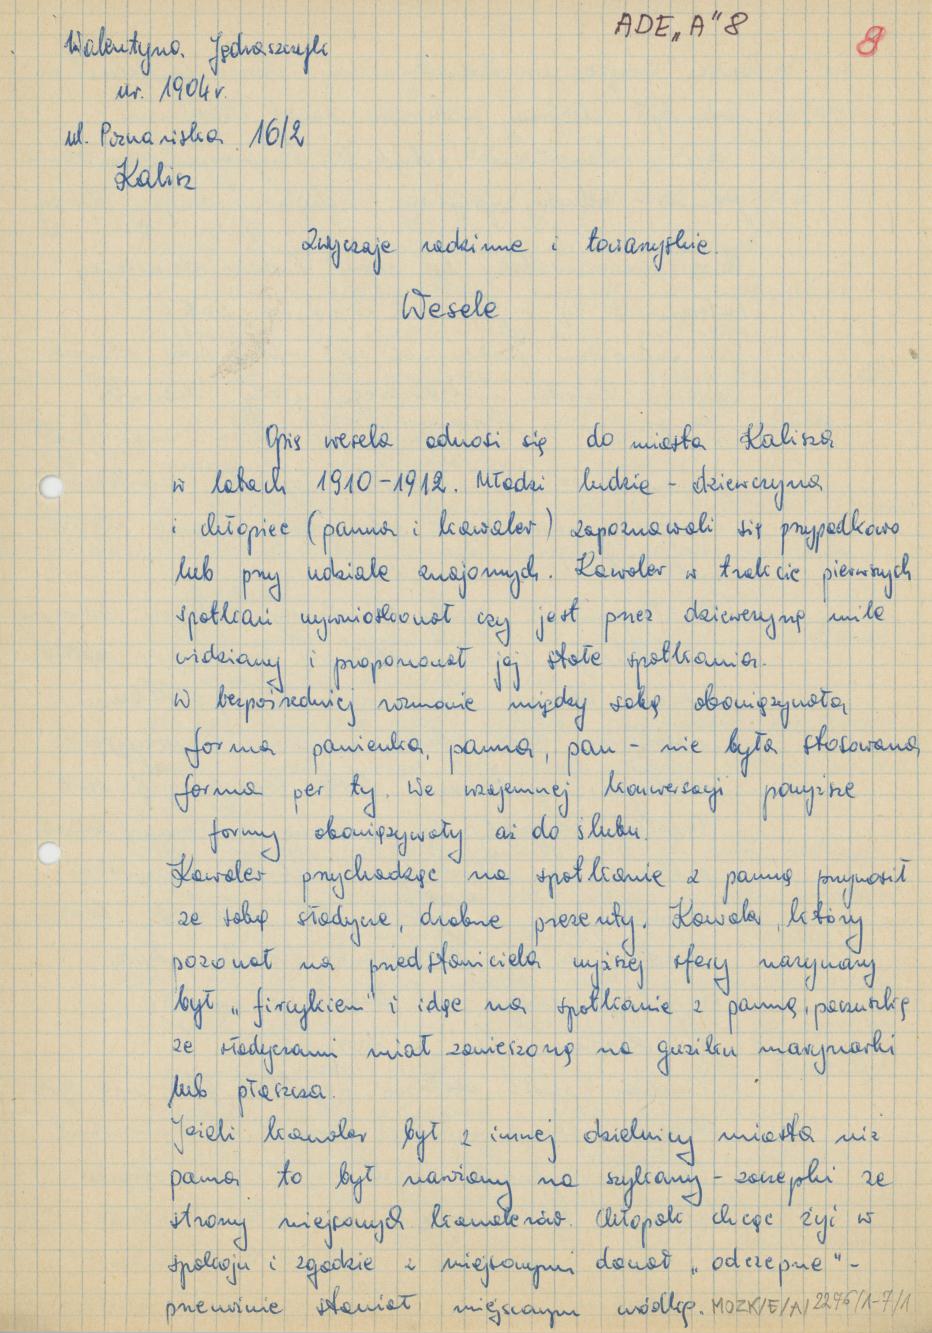 ADE „A” 8
8
Walentyna Jędraszczyk
ur. 1904 r.
ul. Poznańska 16/2
Kalisz
Zwyczaje rodzinne i towarzyskie.
Wesele
Opis wesela odnosi się do miasta Kalisza
w latach 1910-1912. Młodzi ludzie - dziewczyna
i chłopiec (panna i kawaler) zapoznawali się przypadkowo
lub przy udziale znajomych. Kawaler w trakcie pierwszych
spotkań wywnioskował czy jest przez dziewczynę mile
widziany i proponował jej stałe spotkania.
W bezpośredniej rozmowie między sobą obowiązywała
forma panienka, panna, pan - nie była stosowana
forma per ty. We wzajemnej konwersacji powyższe
formy obowiązywały aż do ślubu.
Kawaler przychodząc na spotkanie z panną przynosił
ze sobą słodycze, drobne prezenty. Kawaler, który
pozował na przedstawiciela wyższej sfery nazywany
był „fircykiem” i idąc na spotkanie z panną, paczuszkę
ze słodyczami miał zawieszoną na guziku marynarki
lub płaszcza.
Jeżeli kawaler był z innej dzielnicy miasta niż
panna to był narażony na szykany - zaczepki ze
strony miejscowych kawalerów. Chłopak chcąc żyć w
spokoju i zgodzie z miejscowymi dawał „odczepne” -
przeważnie stawiał miejscowym wódkę. MOZK/E/A/2276/1-7/1